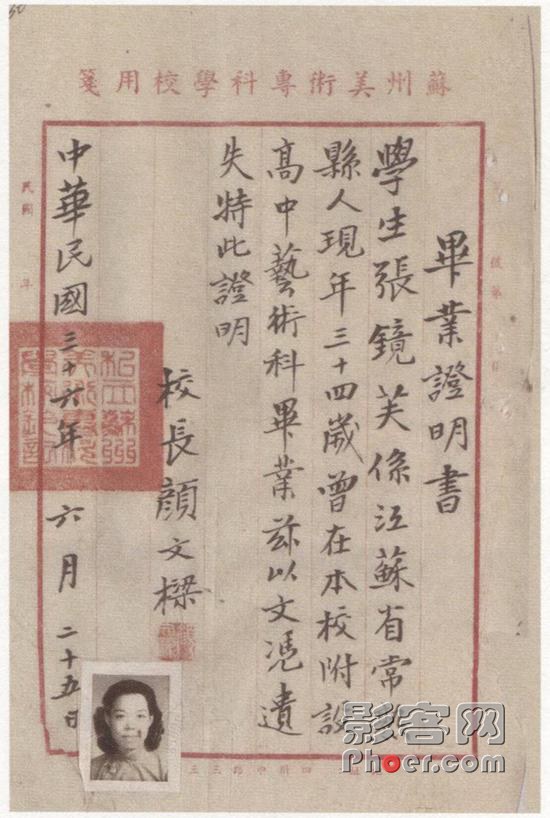 蘇州美術專科學校用箋
畢業證明書
學生張鏡芙係江蘇省常
縣人現年三十四歲曾在本校附設
高中藝術科畢業茲以文憑遺
失特此證明
校長顏文樑
中華民國三十六年六月二十五日
民國 年
影客网
Phoer.com